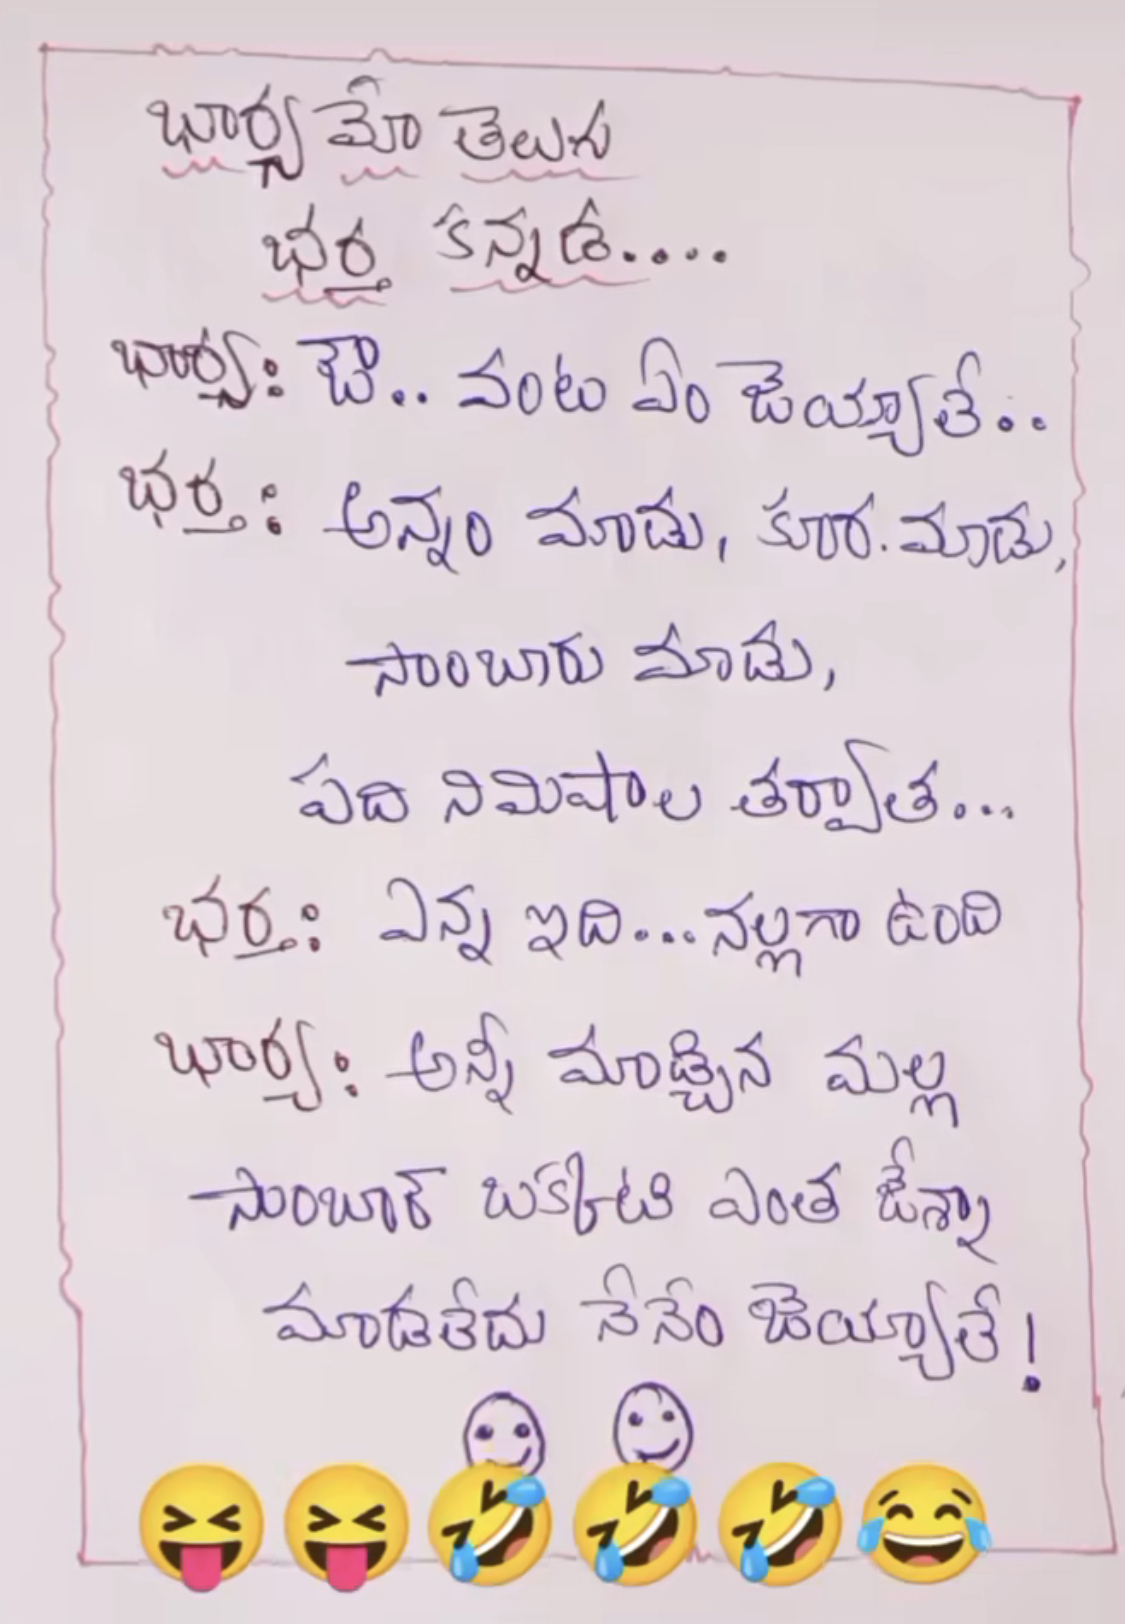 భార్య మో తెలుగు
భర్త కన్నడ....
భార్య: ఔ.. వంట ఏం జెయ్యాలే..
భర్త : అన్నం మాడు, కూర. మాడు,
సాంబారు మాడు,
పది నిమిషాల తర్వాత...
భర్త: ఎన్న ఇది... నల్లగా ఉంది
భార్య: అన్నీ మాడ్చిన మల్ల
సాంబార్ ఒక్కటి ఎంత జేశ్నా
మాడతలేదు నేనేం జెయ్యాలే!